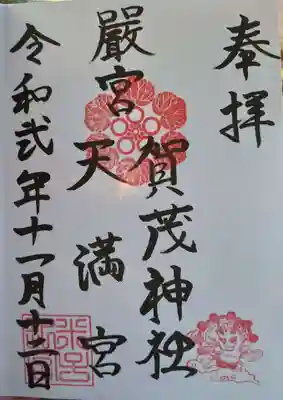 奉拝
賀茂神社
嚴宮
天満宮
令和弐年十一月十二日